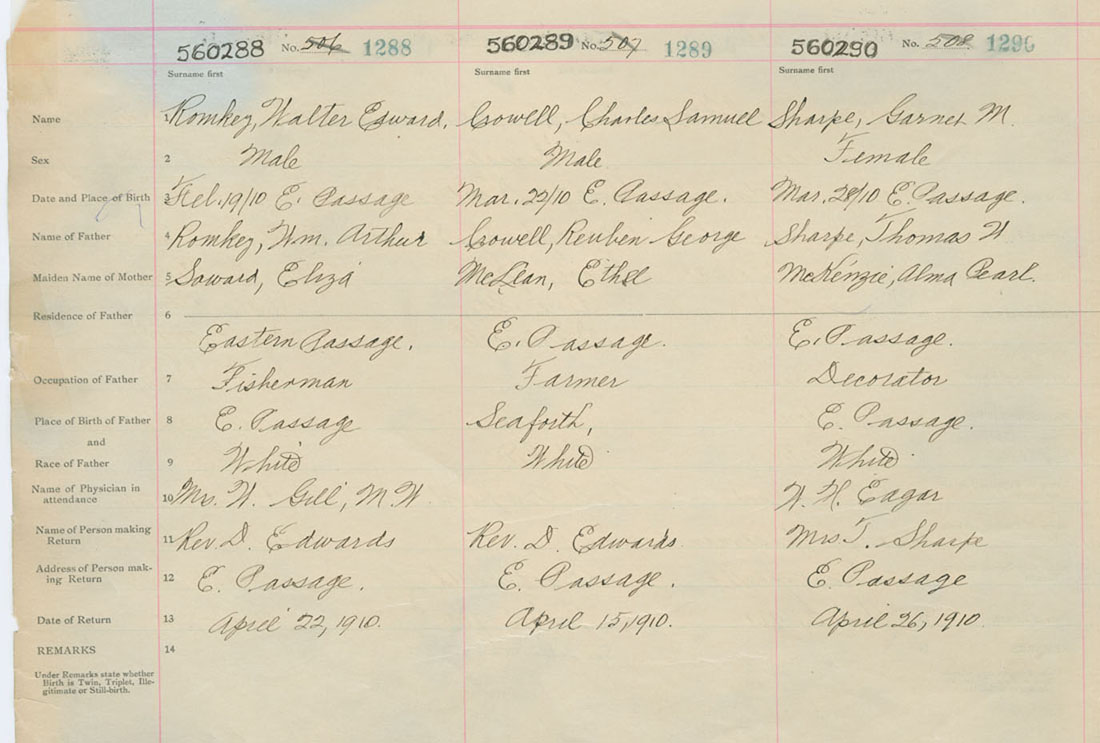 560288 No. 506 1288 560289 No. 507 1289 560290 No. 508 1290
Surname first Surname first Surname first
Name 1 Romkey, Walter Edward. Crowell, Charles Samuel Sharpe, Garnet M.
Sex 2 Male Male. Female
Date and Place of Birth 3 Feb. 19/10 E. Passage Mar. 22/10 E. Passage. Mar. 28/10 E. Passage.
Name of Father 4 Romkey, Wm. Arthur Crowell, Reuben George Sharpe, Thomas W
Maiden Name of Mother 5 Soward, Eliza McLean, Ethel McKenzie, Alma Pearl.
Residence of Father 6
Eastern Passage. E. Passage. E. Passage.
Occupation of Father 7 Fisherman Farmer Decorator
Place of Birth of Father 8 E. Passage Seaforth, E. Passage.
and
Race of Father 9 White White White
Name of Physician in
attendance 10 Mrs. W. Gill, M.W. W. H. Eagar
Name of Person making
Return 11 Rev. D. Edwards Rev. D. Edwards. Mrs T. Sharpe
Address of Person mak-
ing Return 12 E. Passage. E. Passage. E. Passage
Date of Return 13 April 22, 1910. April 15, 1910. April 26, 1910.
REMARKS 14
Under Remarks state whether
Birth is Twin, Triplet, Ille-
gitimate or Still-birth.